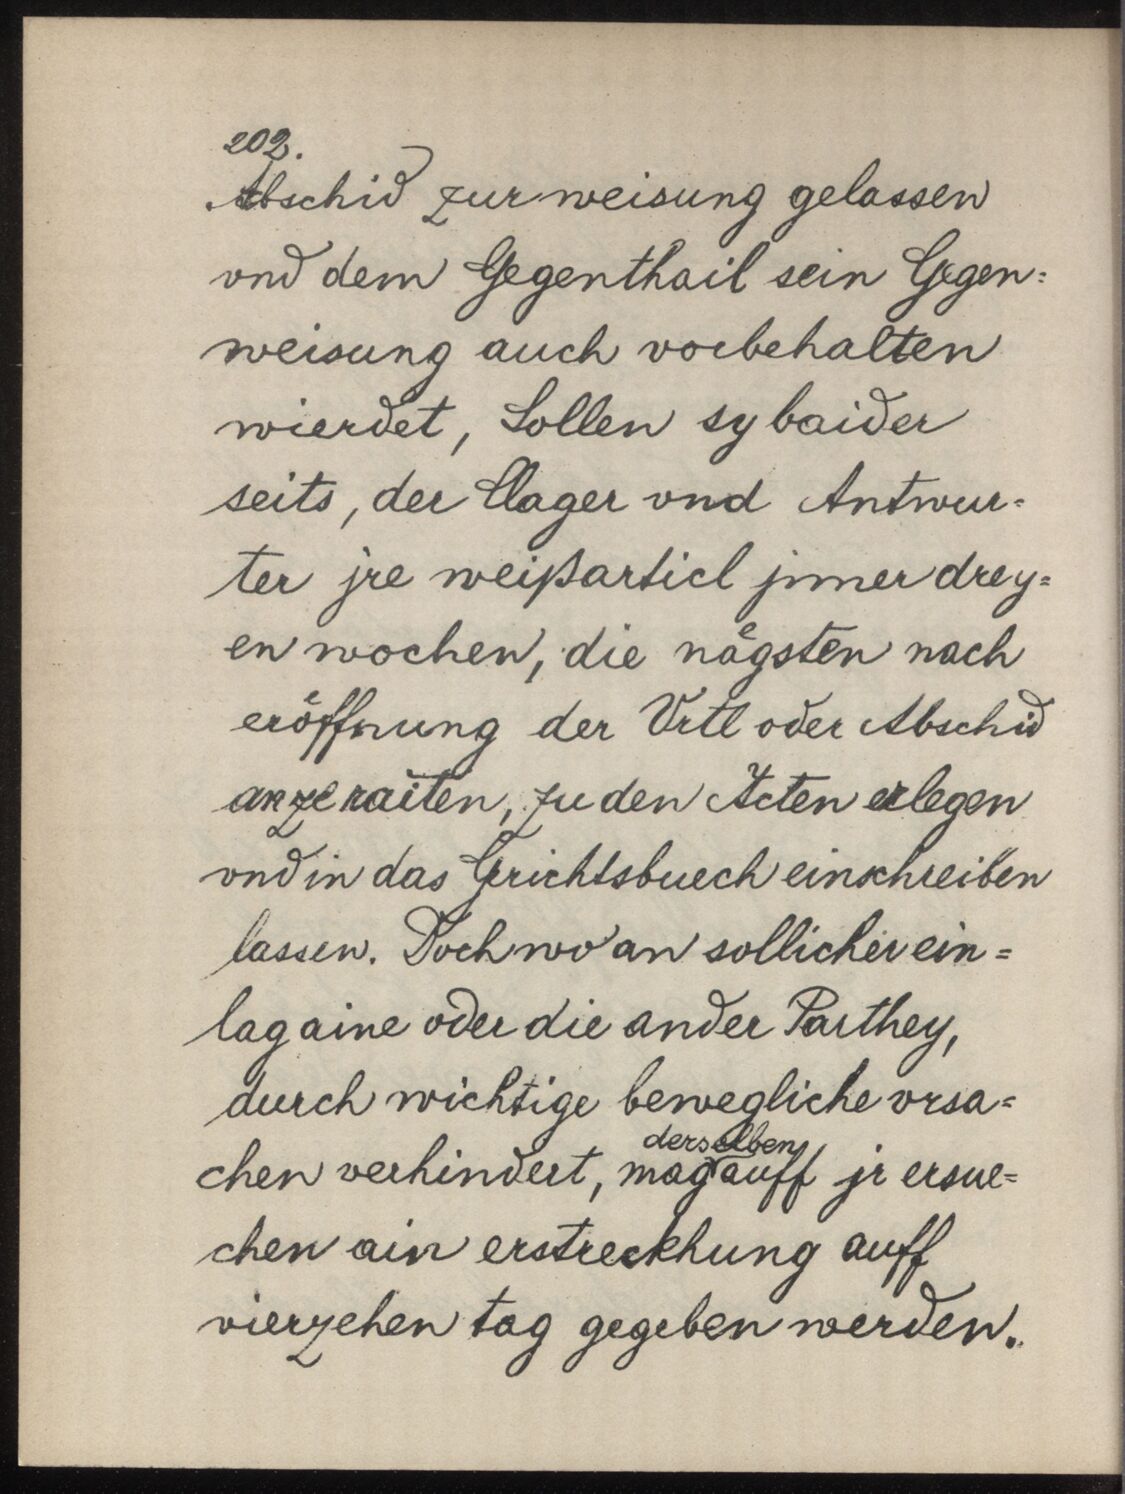 202.
Abschid zur weisung gelassen
vnd dem Gegenthail sein Gegen=
weisung auch vorbehalten
wierdet, Sollen sy baider
seits, der Clager vnd Antwur=
ter jre weißarticl jnner drey=
en wochen, die nägsten nach
eröffnung der Vrtl oder Abschid
anzeraiten, zu den Acten erlegen
vnd in das Grichtsbuech einschreiben
lassen. Doch wo an sollicher ein=
lag aine oder die ander Parthey,
durch wichtige bewegliche vrsa=
chen verhindert, mag derselben auff jr ersue=
chen ain erstreckhung auff
vierzehen tag gegeben werden.